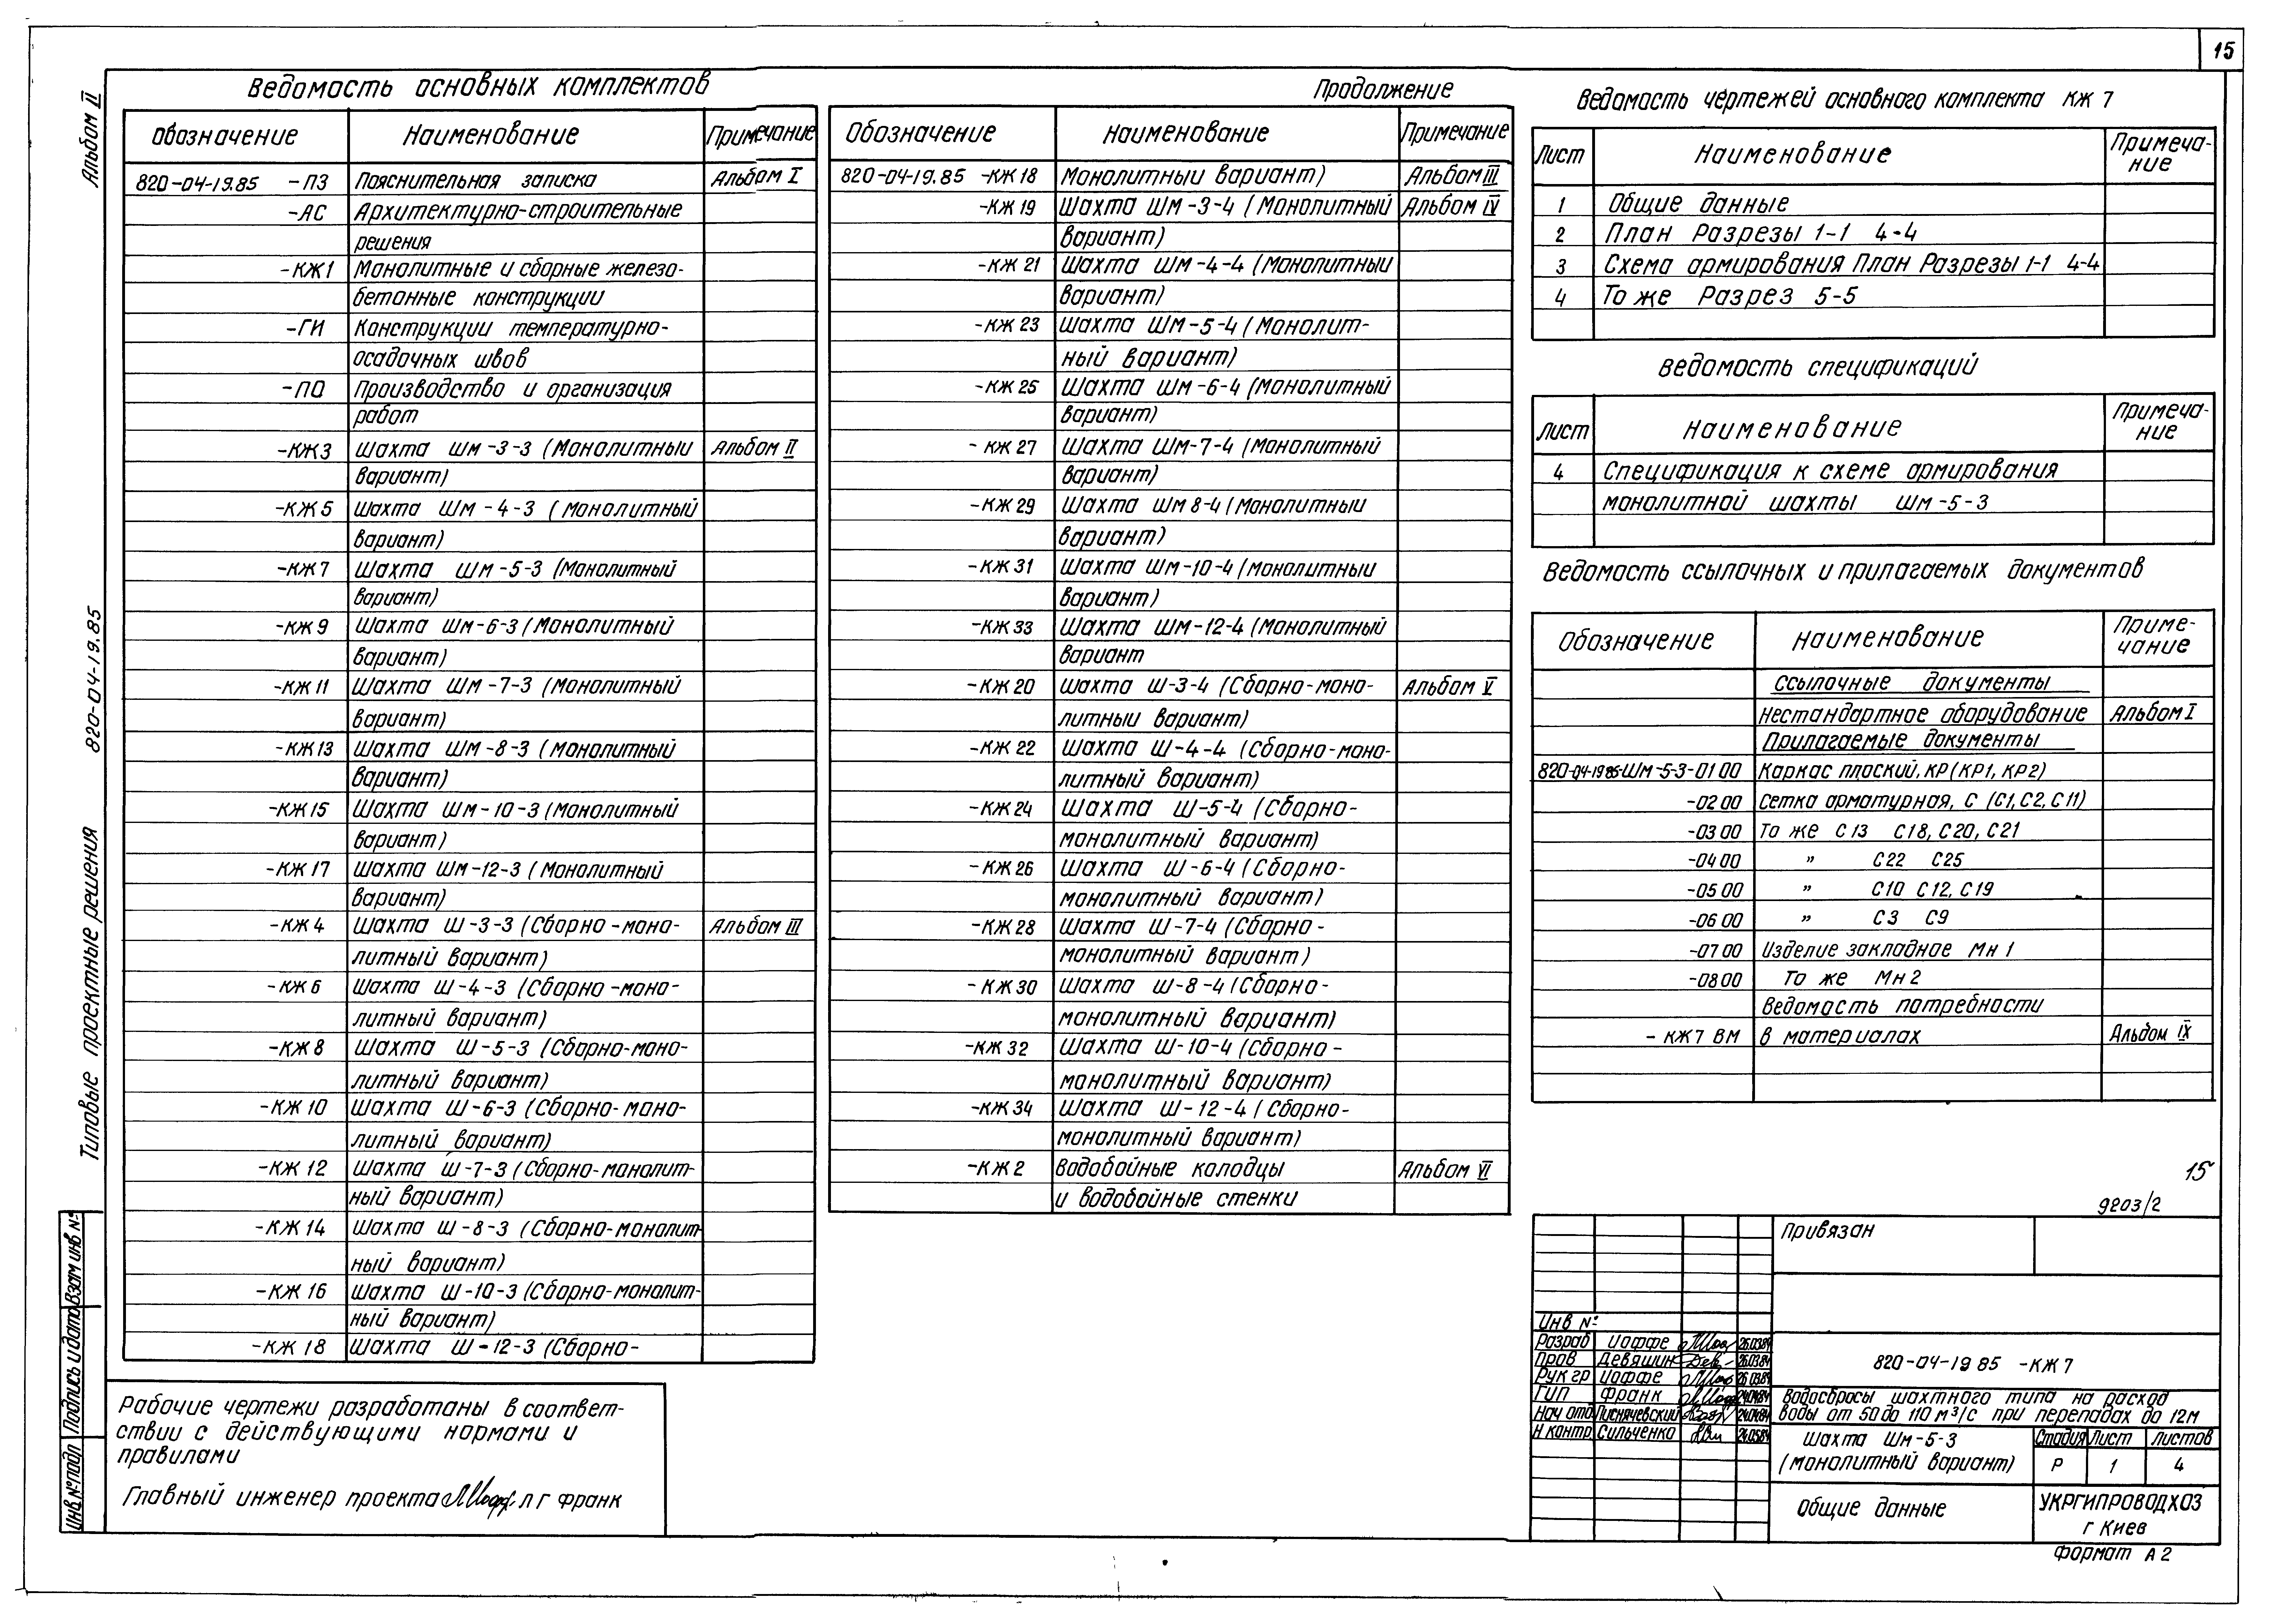 15
Альбом II
Типовые проектные решения 820-04-19.85
Взам инв №
Подпись и дата
Инв № подл
Ведомость основных комплектов
Обозначение Наименование Примечание
820-04-19.85 -ПЗ Пояснительная записка Альбом I
-АС Архитектурно-строительные
решения
-КЖ1 Монолитные и сборные железо-
бетонные конструкции
-ГИ Конструкции температурно-
осадочных швов
-ПО Производство и организация
работ
-КЖ3 Шахта Шм-3-3 (Монолитный Альбом II
вариант)
-КЖ5 Шахта Шм-4-3 (Монолитный
вариант)
-КЖ7 Шахта Шм-5-3 (Монолитный
вариант)
-КЖ9 Шахта Шм-6-3 (Монолитный
вариант)
-КЖ11 Шахта Шм-7-3 (Монолитный
вариант)
-КЖ13 Шахта Шм-8-3 (Монолитный
вариант)
-КЖ15 Шахта Шм-10-3 (Монолитный
вариант)
-КЖ17 Шахта Шм-12-3 (Монолитный
вариант)
-КЖ4 Шахта Ш-3-3 (Сборно-моно- Альбом III
литный вариант)
-КЖ6 Шахта Ш-4-3 (Сборно-моно-
литный вариант)
-КЖ8 Шахта Ш-5-3 (Сборно-моно-
литный вариант)
-КЖ10 Шахта Ш-6-3 (Сборно-моно-
литный вариант)
-КЖ12 Шахта Ш-7-3 (Сборно-монолит-
ный вариант)
-КЖ14 Шахта Ш-8-3 (Сборно-монолит-
ный вариант)
-КЖ16 Шахта Ш-10-3 (Сборно-монолит-
ный вариант)
-КЖ18 Шахта Ш-12-3 (Сборно-
Рабочие чертежи разработаны в соответ-
ствии с действующими нормами и
правилами
Главный инженер проекта Л Г Франк
Продолжение
Обозначение Наименование Примечание
820-04-19.85 -КЖ18 Монолитный вариант) Альбом III
-КЖ19 Шахта Шм-3-4 (Монолитный Альбом IV
вариант)
-КЖ21 Шахта Шм-4-4 (Монолитный
вариант)
-КЖ23 Шахта Шм-5-4 (Монолит-
ный вариант)
-КЖ25 Шахта Шм-6-4 (Монолитный
вариант)
-КЖ27 Шахта Шм-7-4 (Монолитный
вариант)
-КЖ29 Шахта Шм 8-4 (Монолитный
вариант)
-КЖ31 Шахта Шм-10-4 (Монолитный
вариант)
-КЖ33 Шахта Шм-12-4 (Монолитный
вариант
-КЖ20 Шахта Ш-3-4 (Сборно-моно- Альбом V
литный вариант)
-КЖ22 Шахта Ш-4-4 (Сборно-моно-
литный вариант)
-КЖ24 Шахта Ш-5-4 (Сборно-
монолитный вариант)
-КЖ26 Шахта Ш-6-4 (Сборно-
монолитный вариант)
-КЖ28 Шахта Ш-7-4 (Сборно-
монолитный вариант)
-КЖ30 Шахта Ш-8-4 (Сборно-
монолитный вариант)
-КЖ32 Шахта Ш-10-4 (Сборно-
монолитный вариант)
-КЖ34 Шахта Ш-12-4 (Сборно-
монолитный вариант)
-КЖ2 Водобойные колодцы Альбом VI
и водобойные стенки
Ведомость чертежей основного комплекта КЖ 7
Лист Наименование Примеча-
ние
1 Общие данные
2 План Разрезы 1-1 4-4
3 Схема армирования План Разрезы 1-1 4-4
4 То же Разрез 5-5
Ведомость спецификаций
Лист Наименование Примеча-
ние
4 Спецификация к схеме армирования
монолитной шахты Шм-5-3
Ведомость ссылочных и прилагаемых документов
Обозначение Наименование Приме-
чание
Ссылочные документы
Нестандартное оборудование Альбом I
Прилагаемые документы
820-04-19 85-Шм-5-3-01 00 Каркас плоский, КР (КР1, КР2)
-02 00 Сетка арматурная, С (С1, С2, С11)
-03 00 То же С13 С18, С20, С21
-04 00 " С22 С25
-05 00 " С10 С12, С19
-06 00 " С3 С9
-07 00 Изделие закладное Мн 1
-08 00 То же Мн 2
Ведомость потребности
- КЖ7 ВМ в материалах Альбом IX
15
9203/2
Привязан
Инв №
Разраб Иоффе 26.03.84
Пров Девяшин 26.03.84
Рук гр Иоффе 26 03.84
ГИП Франк 24.04.84
Нач отд Лисничевский 24.04.84
Н контр Сильченко 24.05.84
820-04-19 85 -КЖ 7
Водосбросы шахтного типа на расход
воды от 50 до 110 м³/с при перепадах до 12м
Шахта Шм-5-3
(монолитный вариант)
Стадия Лист Листов
Р 1 4
Общие данные
УКРГИПРОВОДХОЗ
г Киев
Формат А2